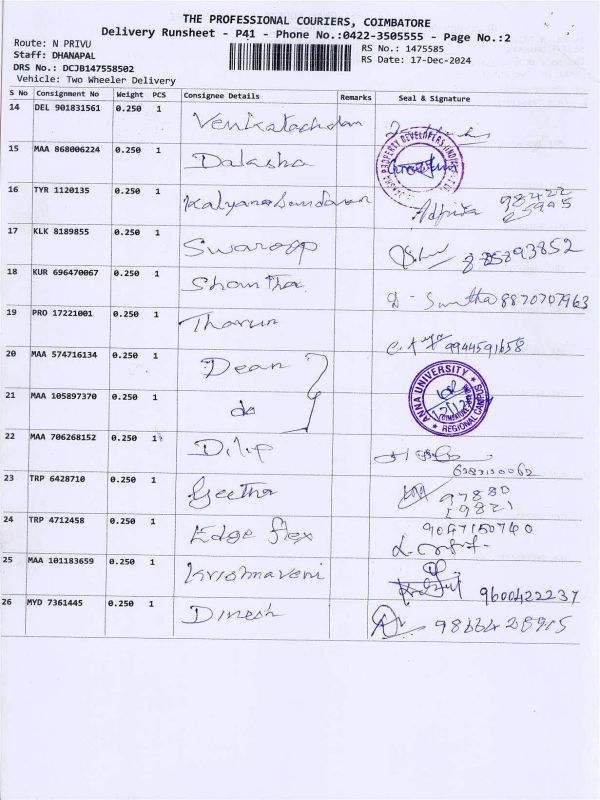 THE PROFESSIONAL COURIERS, COIMBATORE
Delivery Runsheet - P41 - Phone No.:0422-3505555 - Page No.:2
Route: N PRIVU
RS No.: 1475585
Staff: DHANAPAL
RS Date: 17-Dec-2024
DRS No.: DCJB147558502
Vehicle: Two Wheeler Delivery
S No Consignment No Weight PCS Consignee Details Remarks Seal & Signature
14 DEL 901831561 0.250 1 Venkatachalam
15 MAA 868006224 0.250 1 Dalasha
PROPERTY DEVELOPERS
16 TYR 1120135 0.250 1 Kalyanasundaram
98422
25995
17 KLK 8189855 0.250 1 Swaroop
18 KUR 696470067 0.250 1 Shantha D- Suntha 8870707963
19 PRO 17221001 0.250 1 Tharun 9944591658
20 MAA 574716134 0.250 1 Dean
ANNA UNIVERSITY
REGIONAL CAMPUS
COIMBATORE
21 MAA 105897370 0.250 1 do
22 MAA 706268152 0.250 1 Dilip
23 TRP 6428710 0.250 1 Geetha
97880
19821
24 TRP 4712458 0.250 1 Edge flex
9047150740
25 MAA 101183659 0.250 1 Krishnaveni
9600422237
26 MYD 7361445 0.250 1 Dinesh